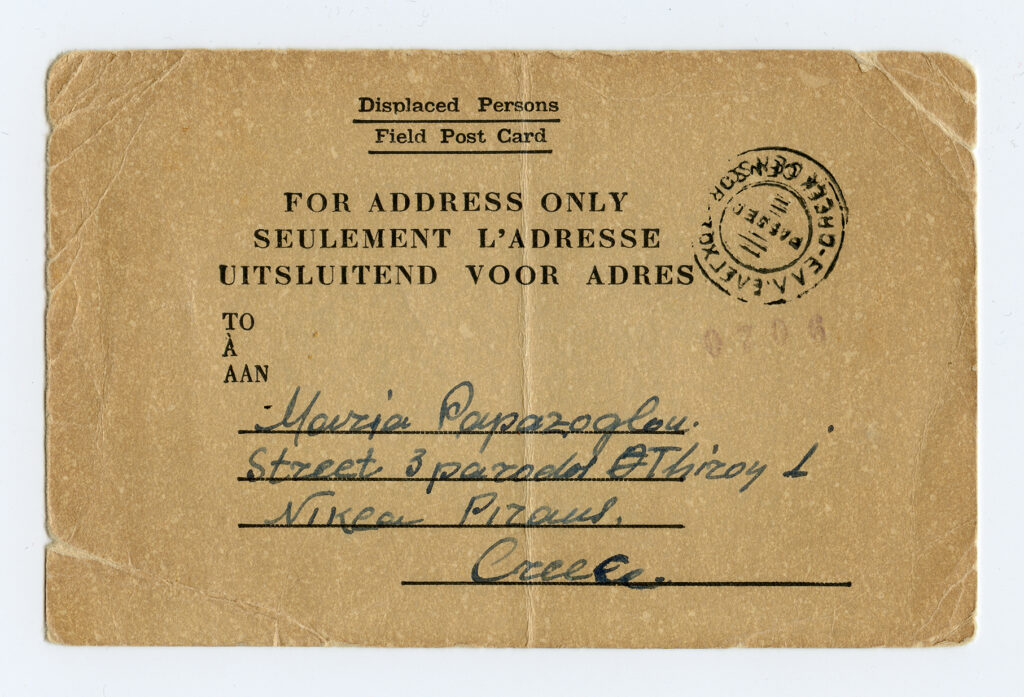 Displaced Persons
Field Post Card
FOR ADDRESS ONLY
SEULEMENT L'ADRESSE
UITSLUITEND VOOR ADRES
TO
À
AAN
CENSOR
0706
Maria Papazoglou.
Street 3 parodos Thiroy 1
Nikea Piraus.
Greece.